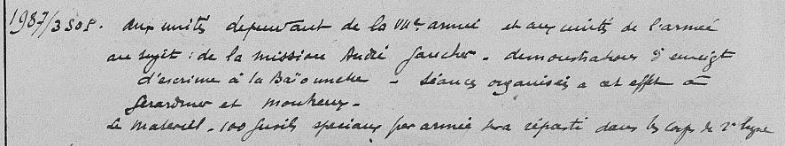 1987/3 S.O.S. Aux unités dépendant de la VIIe armée et aux unités de l'armée
au sujet : de la mission André Gaucher - demonstrations d'enseigt
d'escrime à la Baïonnette - séances organisées a cet effet à
Gérardmer et Montreux -
Le matériel - 100 fusils speciaux par armée sera réparti dans les corps de 2e ligne